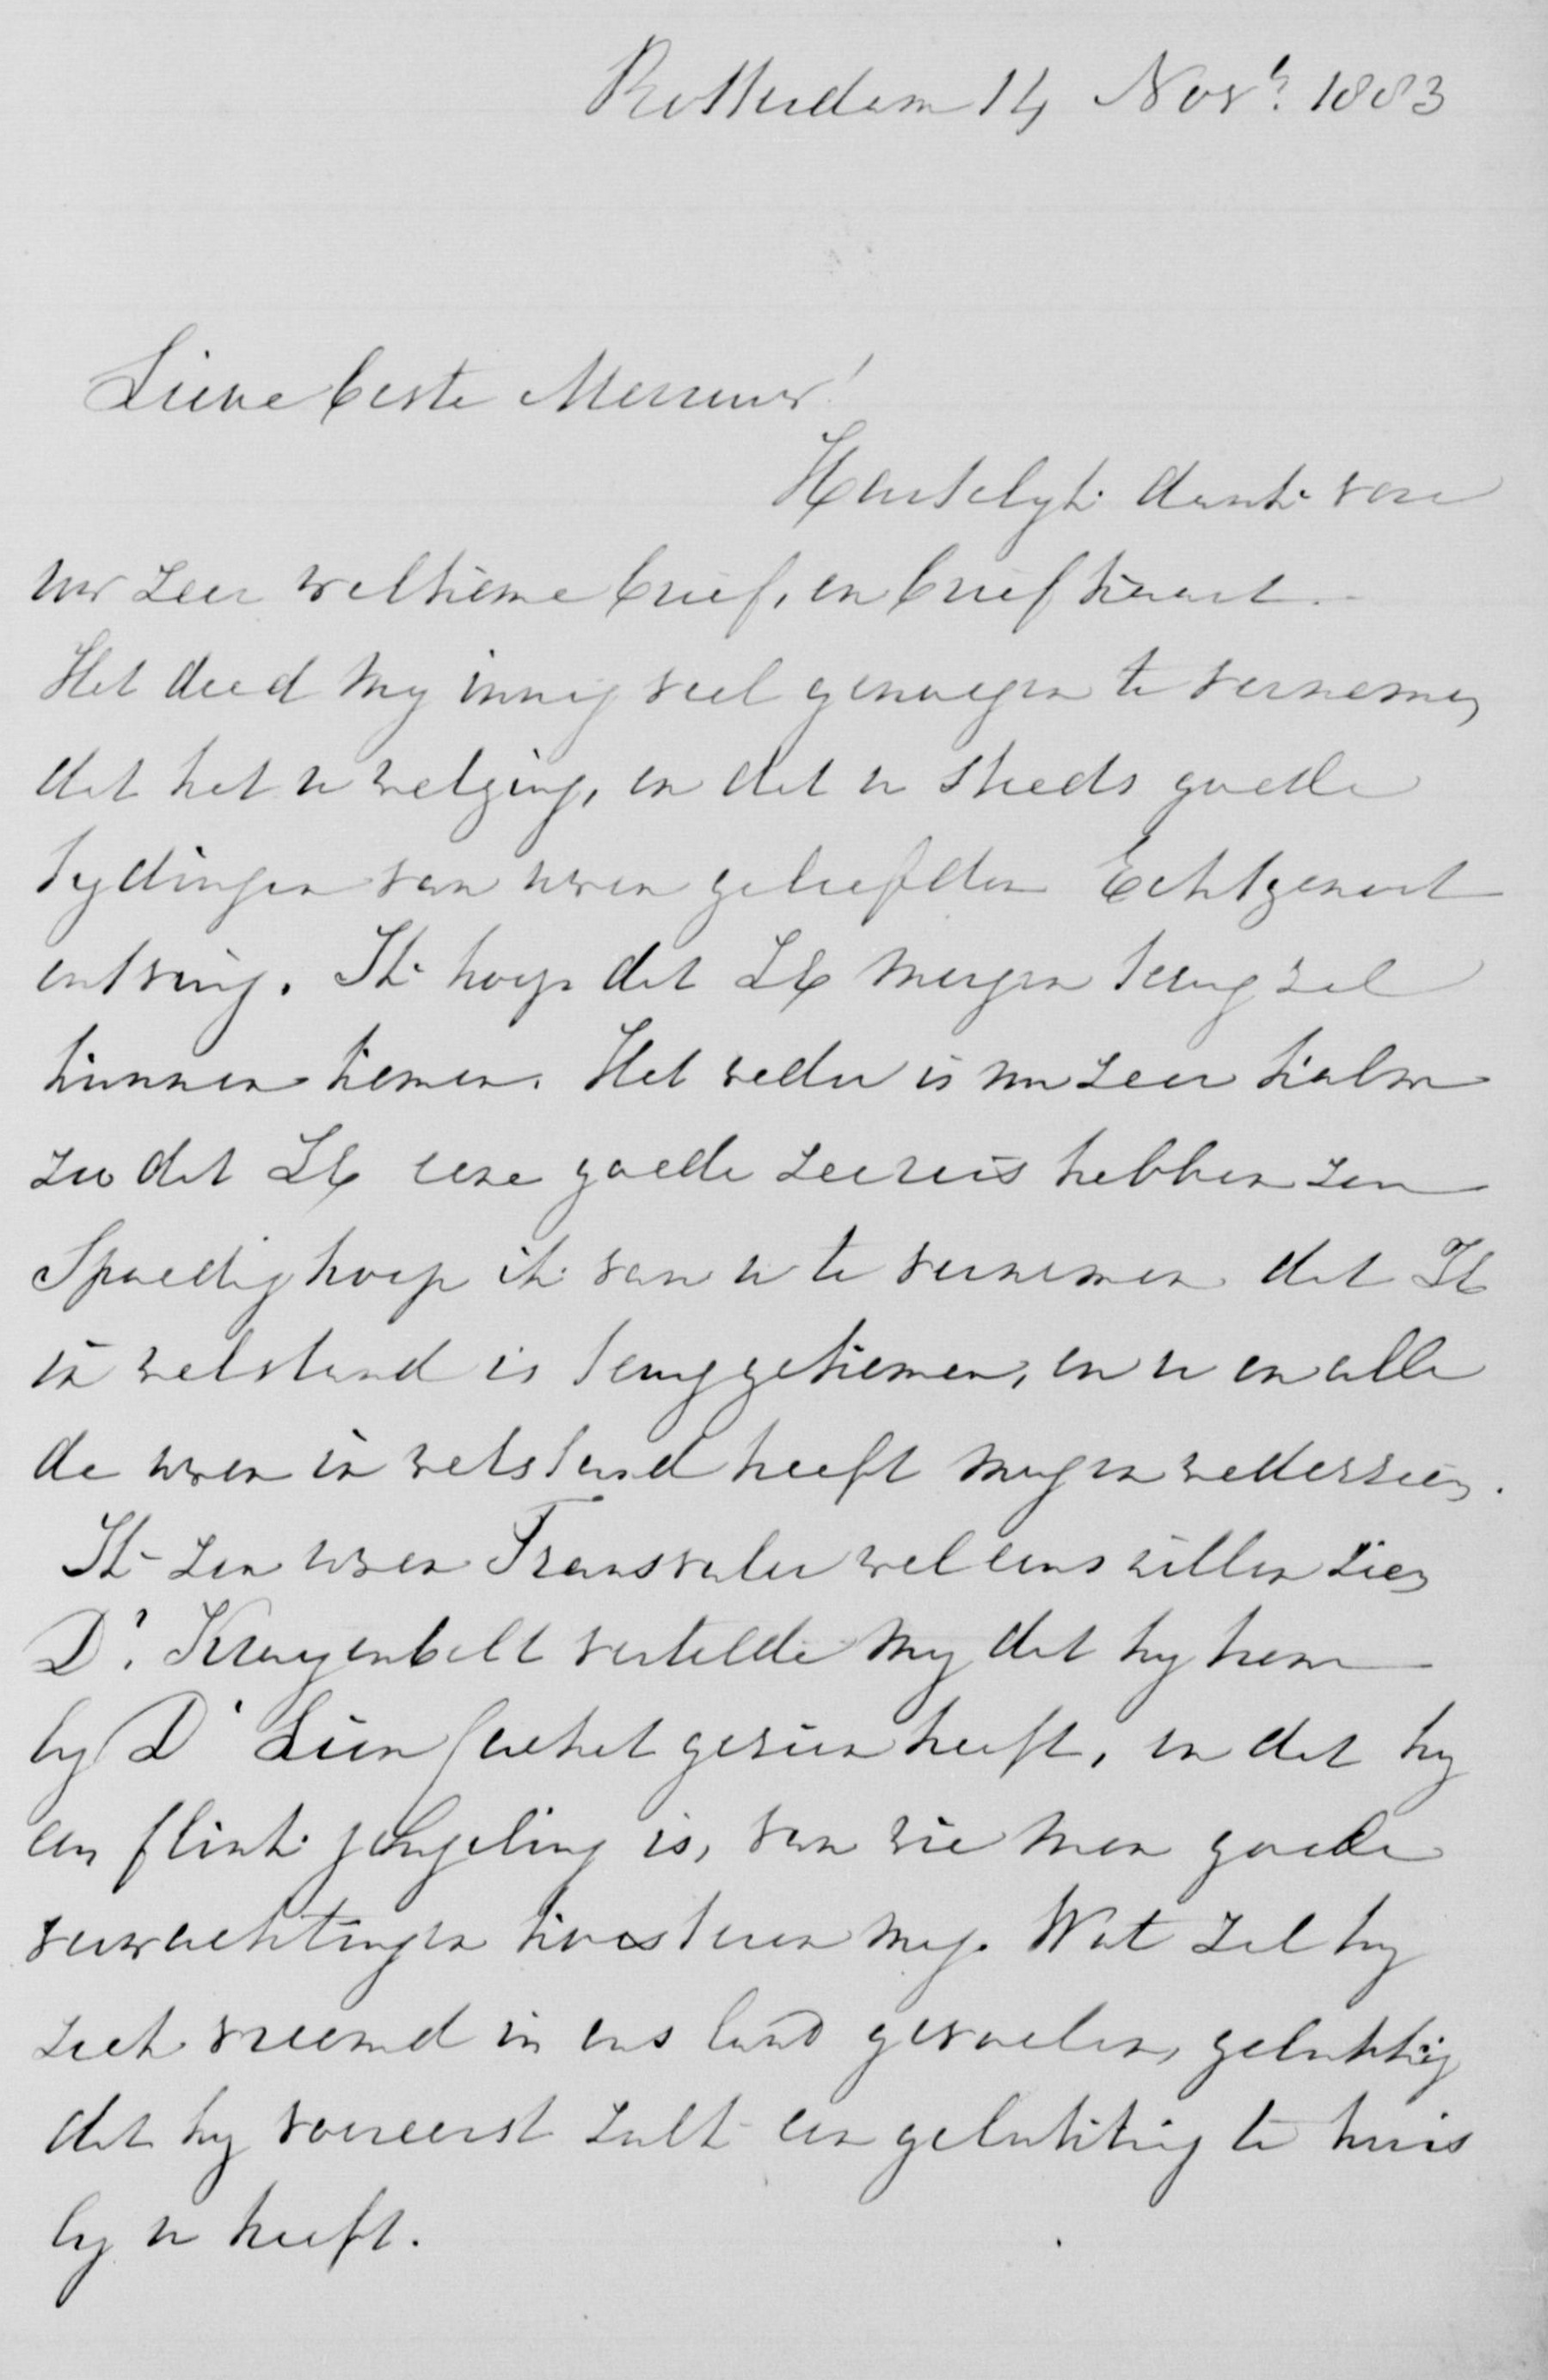 Rotterdam 14 Novr. 1883
Lieve beste Mevrouw!
Hartelyk dank voor
uw zeer welkome brief, en briefkaart.
Het deed my innig veel genoegen te vernemen
dat het u welging, en dat u steeds goede
tydingen van uwen geliefden Echtgenoot
ontving. Ik hoop dat ZE morgen terug zal
kunnen komen. Het weder is nu zeer kalm
zoo dat ZE eene goede zeereis hebben zou
Spoedig hoop ik van u te vernemen dat ZE
in welstand is teruggekomen, en u en alle
de uwen in welstand heeft mogen wederzien.
Ik zou uwen Transvaler wel eens willen zien
Ds. Kruyenbelt vertelde my dat hy hem
by Ds Lion Cachet gezien heeft, en dat hy
een flink jongeling is, van wie men goede
verwachtingen koesteren mag. Wat zal hy
zich vreemd in ons land gevoelen, gelukkig
dat hy vooreerst zulk een gelukkig te huis
by u heeft.